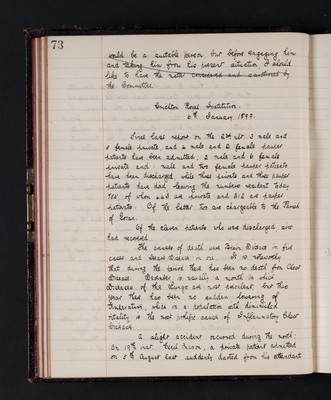 73
would be a suitable person but before engaging him
and taking him from his present situation I should
like to have the matter considered and sanctioned by
the Committee.
Crichton Royal Institution.
6th January 1899.
Since last report on the 2nd ult. 3 male and
female private, and male and 2 female pauper
patients have been admitted; 2 male and 6 female
private and male and two female pauper patients
have been discharged, while three private and three pauper
patients have died leaving the numbers resident today
of whom are private and 312 are pauper
patients. Of the latter two are chargeable to the Parish
of Govan.
Of the eleven patients who were discharged,
had recovered.
The causes of death were Brain Disease in five
cases and Heart Disease in one. It is noteworthy
that during the period there has been no death from Chest
Disease. December is usually a month in which
Diseases of the Lungs are most prevalent, but this
year there has been no sudden lowering of
Temperature which in a population with diminished
vitality is the most prolific cause of Inflammatory Chest
Disease.
A slight accident occurred during the month:
On 19th inst. Cecil a private patient admitted
on 5th August last suddenly darted from his attendant